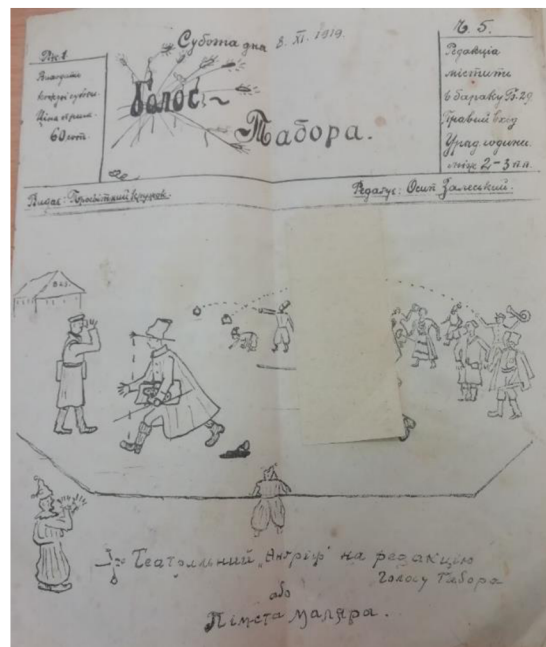 Рік 1
Виходить
кожної суботи.
Ціна примір.
60 сот.
Субота дня 8. XI. 1919.
Голос
Табора.
Ч. 5.
Редакція
містить
в бараку Ч. 29
Правий вхід
Уряд. години
між 2-3 пп.
Видає: Просвітний кружок.
Редагує: Осип Залеський.
Театральний „Анґріф" на редакцію
Голосу Табора
або
Пімста маляра.